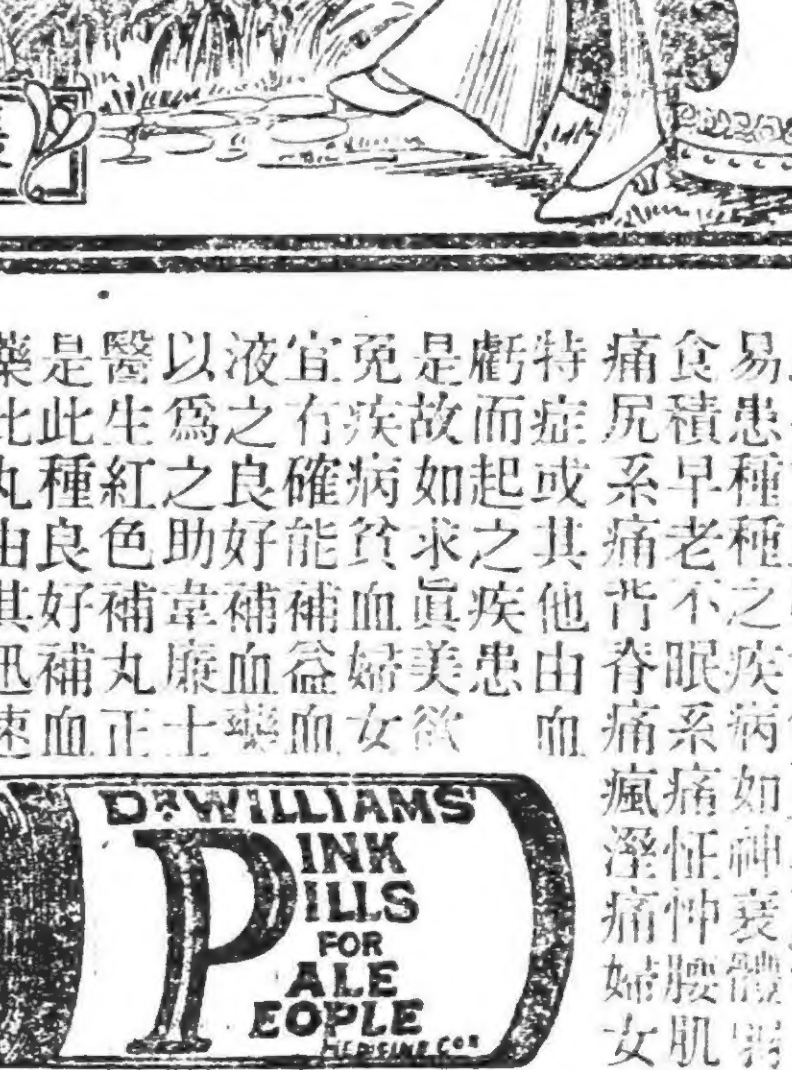 易患種種之疾病如神衰體弱
食積早老不眠系痛怔忡腰肌
痛尻系痛背脊痛瘋溼痛婦女
特症或其他由血
虧而起之疾患
是故如求眞美欲
免疾病貧血婦女
宜有確能補益血
液之良好補血藥
以爲之助韋廉士
醫生紅色補丸正
是此種良好補血
藥此丸由其迅速
DR WILLIAMS'
PINK
PILLS
FOR
PALE
PEOPLE
MEDICINE CO